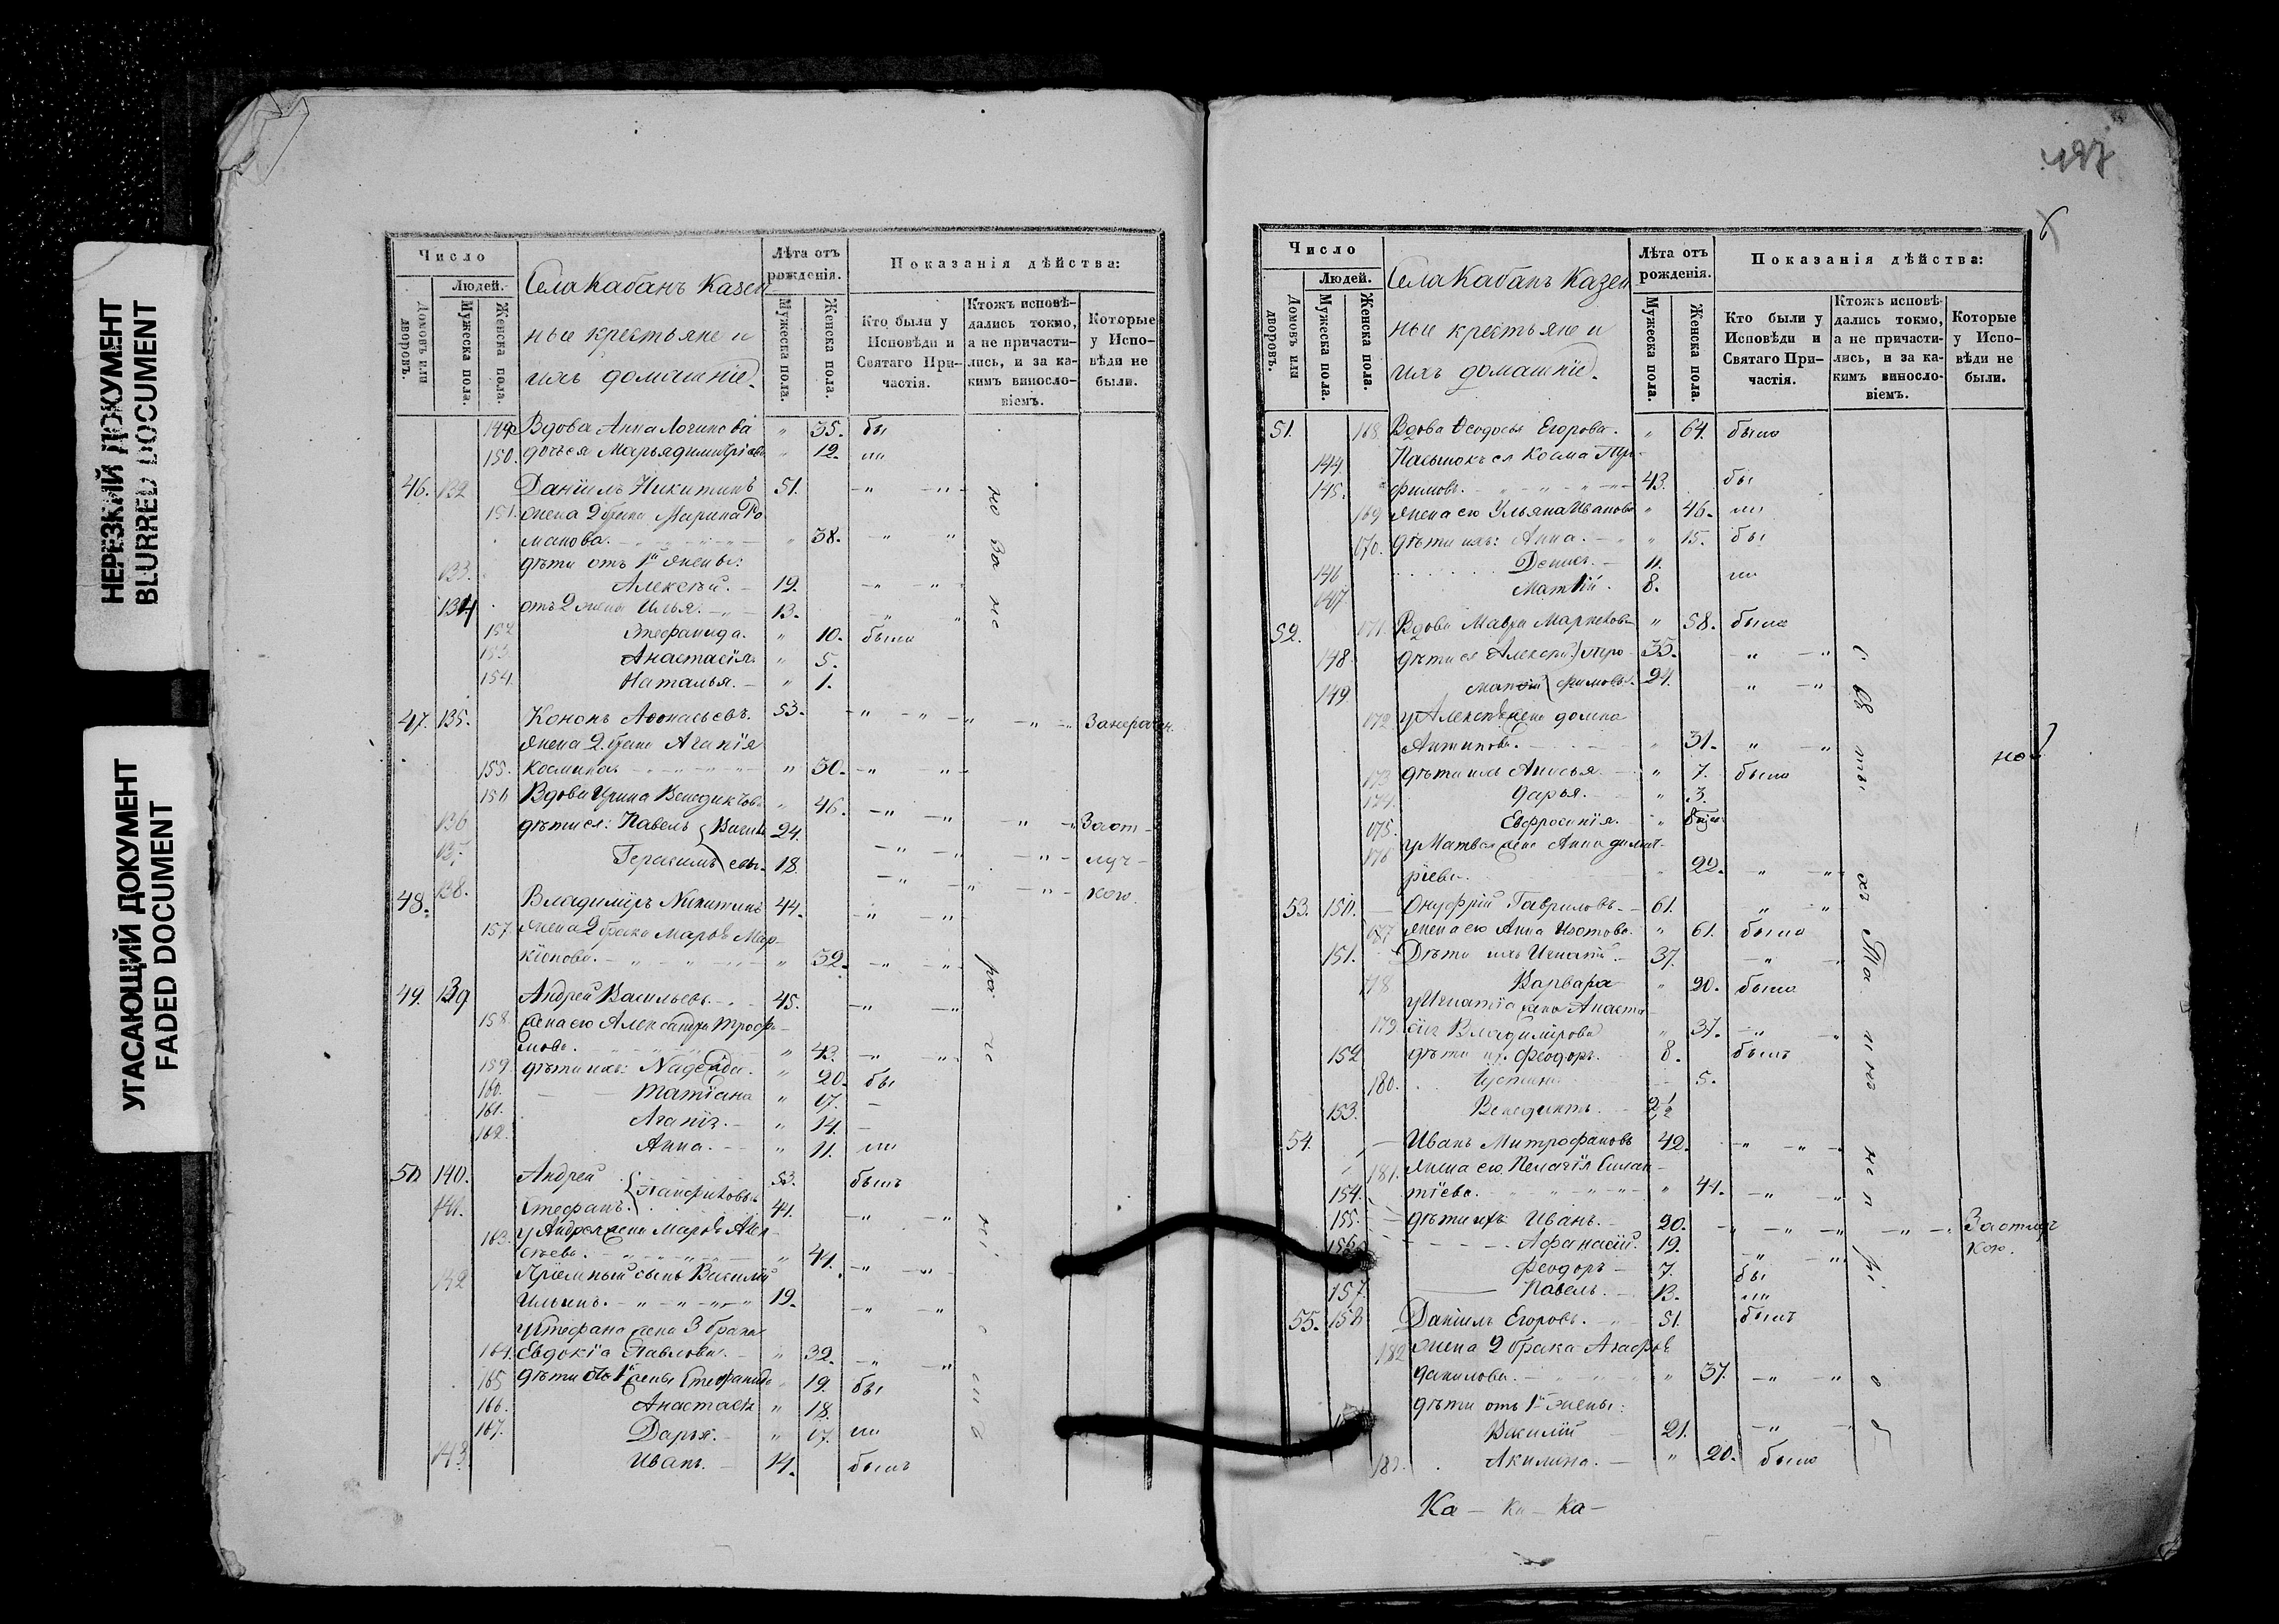 НЕРЕЗКИЙ ДОКУМЕНТ
BLURRED DOCUMENT
УГАСАЮЩИЙ ДОКУМЕНТ
FADED DOCUMENT
Число
Людей.
Домовъ или дворовъ.
Мужеска пола.
Женска пола.
Села Кабанъ Казен
ные крестьяне и
ихъ домашніе.
Лѣта отъ рожденія.
Мужеска пола.
Женска пола.
Показанія дѣйства:
Кто были у Исповѣди и Святаго Причастія.
Ктожъ исповѣдались токмо, а не причастились, и за какимъ винословіемъ.
Которые у Исповѣди не были.
149 Вдова Анна Логинова " 35. бы
150. дочь ея Марья димитріева " 12. ли
46. 132 Даніилъ Никитинъ 51. " "
151. жена 2 брака Марина Ро
манова. " 38. " "
133. дѣти отъ 1й жены:
Алексѣй. 19. " "
134 отъ 2 жены Илья. 13. " "
152 Стефанида. " 10. была
153 Анастасія. " 5.
154. Наталья. " 1.
47. 135. Кононъ Аѳонасьевъ. 53. " " " "
жена 2. брака Агапія
155. Космина " 50. " "
156 Вдова Ирина Венедиктова " 46. " " "
136 дѣти ея: Павелъ 24. Заот-
137 Герасимъ 18. " " " луч-
138. " " " кою.
48. Владиміръ Никитинъ 44. " "
157. жена 2 брака Марѳа Мар-
кіонова. " 32. " "
49. 139 Андрей Васильевъ. 45. " "
158. жена его Александра Трофи-
мова. " 43. " "
159. дѣти ихъ: Надежда. " 20. бы
160. Татіана " 17. -
161. Агапія. " 14. -
162. Анна. " 11. ли
50 140. Андрей 53. былъ
141. Стефанъ. Панфиловы 44. " "
163. у Андрея жена Марѳа Алек-
сѣева. " 41. " "
142 Пріемный сынъ Василій
Ильинъ. 19. " "
у Стефана жена 3 брака
164. Евдокія Павлова. " 32. " "
165 дѣти отъ 1й жены Стефанида " 19. бы
166. Анастасія " 18.
167. Дарья. " 17. ли
143. Иванъ. 14. былъ
197
6
Число
Людей.
Домовъ или дворовъ.
Мужеска пола.
Женска пола.
Села Кабанъ Казен
ные крестьяне и
ихъ домашніе.
Лѣта отъ рожденія.
Мужеска пола.
Женска пола.
Показанія дѣйства:
Кто были у Исповѣди и Святаго Причастія.
Ктожъ исповѣдались токмо, а не причастились, и за какимъ винословіемъ.
Которые у Исповѣди не были.
51. 168. Вдова Ѳеодосья Егорова. " 64. была
144. Пасынокъ ея Косма Тро-
145. фимовъ. 43. бы
169 жена его Ульяна Иванова " 46. ли
170. дѣти ихъ: Анна. " 15. бы
146 Денисъ. 11. ли
147 Матѳій. 8.
52. 171. Вдова Мавра Маркелова " 58. была
148 дѣти ея Алексѣй Тро- 35. " "
149 фимовы. 24. " "
172 у Алексѣя жена домна
Антипова. " 31. " "
173 дѣти ихъ Анисья. " 7. была
174. Дарья. " 3.
175. Евфросинія. "
176 у Матвея жена Анна димит-
ріева. " 22. " "
53. 150. Онуфрій Гавриловъ. 61. " "
177 жена его Анна Изотова. " 61. была
151. Дѣти ихъ Игнатій. 37. " "
178 Варвара " 20. была
у Игнатія жена Анаста-
179. сія Владимірова " 37. " "
152 дѣти их. Феодоръ. 8. былъ
180. Іустина 5.
153. Венедиктъ. 2½
54. Иванъ Митрофановъ 42. " " "
181. жена его Пелагія Силан-
154. тіева. " 44. " "
155. дѣти ихъ Иванъ. 20. " " " " Заотлуч
156 Афанасій. 19. " " кою.
Феодоръ 7. бы
157. Павелъ. 13. ли
55. 158 Даніилъ Егоровъ. 51. былъ
182 жена 2 брака Агафія
данилова. " 37. " "
дѣти отъ 1й жены:
Василій 21. " "
183. Акилина. " 20. была
Ка - Ка - Ка -